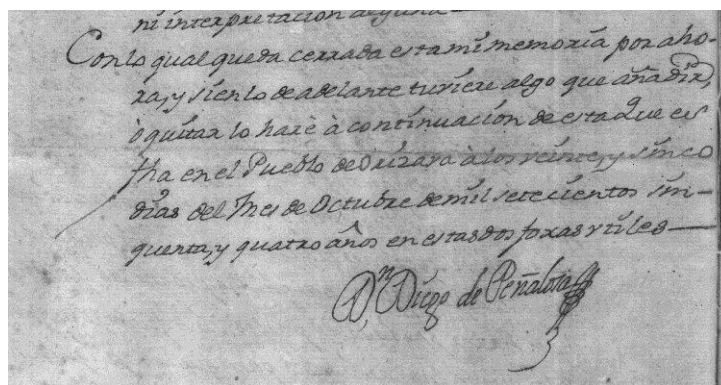 ni interpretacion alguna
Con lo qual queda cerrada esta mi memoria por aho-
ra, y si en lo de adelante tuviere algo que añadir,
ò quitar lo harè à continuacion de esta Que es
fha en el Pueblo de Orizava à los veinte, y sinco
dias del Mes de Octubre de mil setecientos sin-
quenta, y quatro años en estas dos foxas utiles
Dn. Diego de Peñalosa